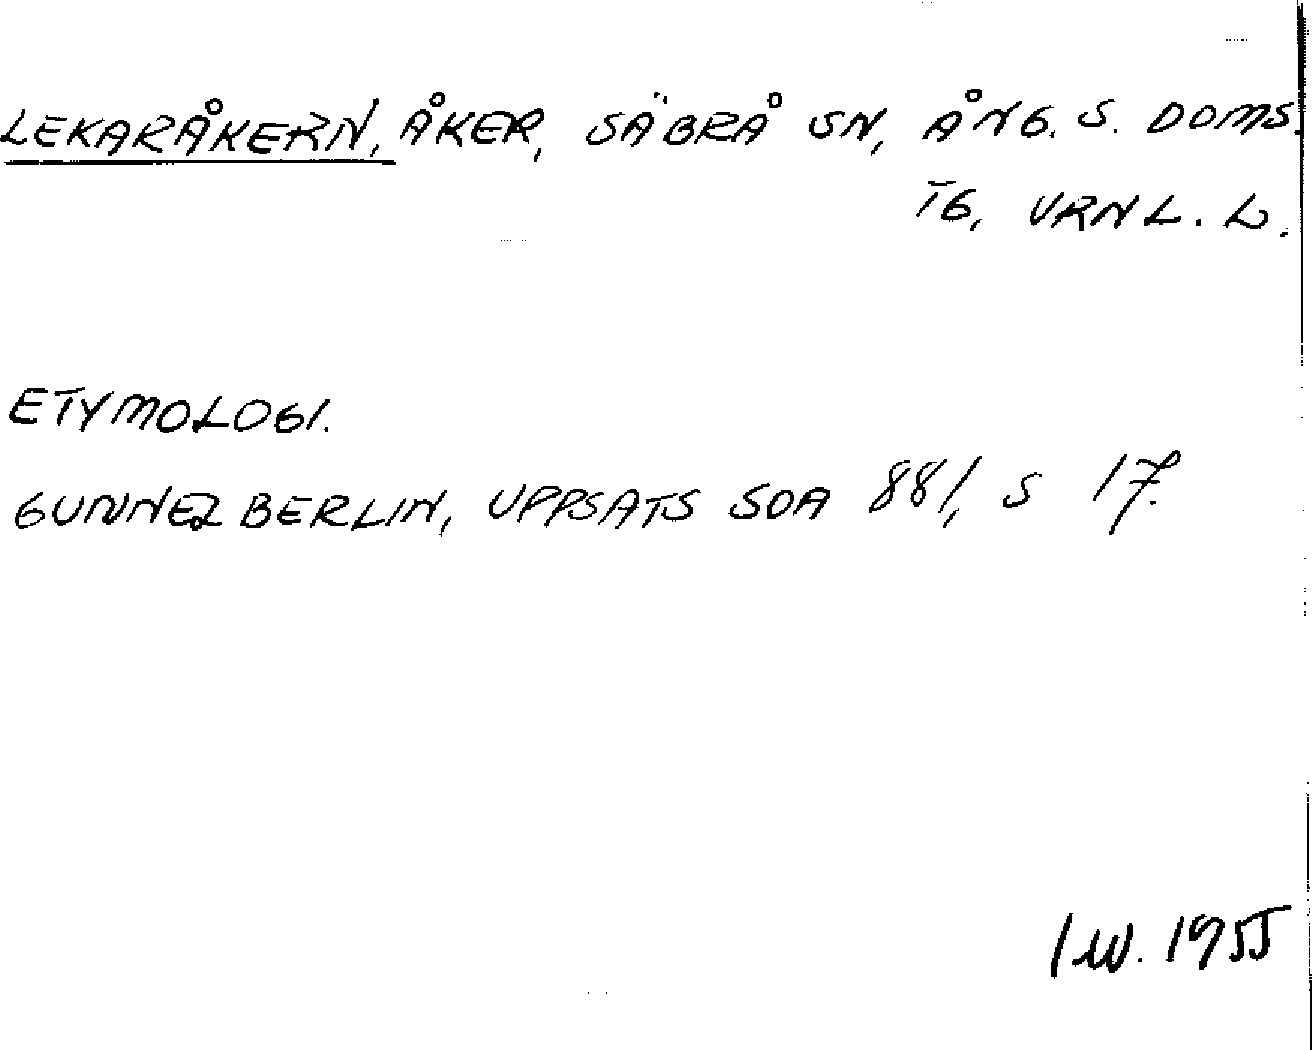 LEKARÅKERN, ÅKER, SÄBRÅ SN, ÅNG. S. DOMS.
TG, VRNL. L.
ETYMOLOGI.
GUNNEL BERLIN, UPPSATS SOA 881, S 17.
IW. 1955